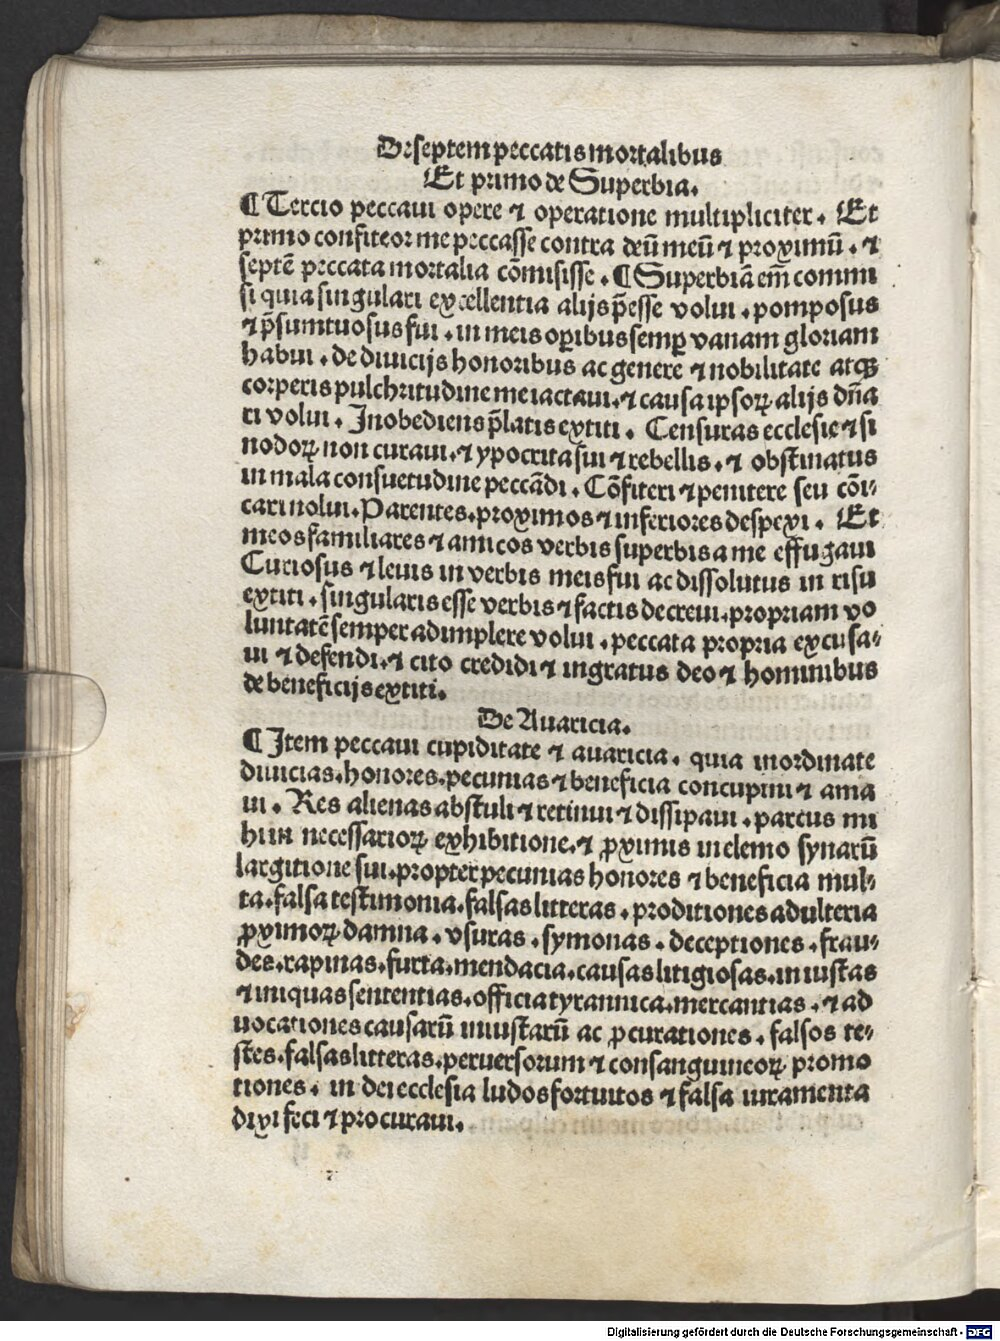 De septem peccatis mortalibus
Et primo de Superbia.
¶ Tercio peccaui opere ⁊ operatione multipliciter. Et
primo confiteor me peccasse contra deū meū ⁊ proximū. ⁊
septē peccata mortalia cōmisisse. ¶ Superbiā em̄ commi
si quia singulari excellentia alijs p̄esse volui. pomposus
⁊ p̄sumtuosus fui. in meis oꝑibus semꝑ vanam gloriam
habui. de diuicijs honoribus ac genere ⁊ nobilitate atqꝫ
corperis pulchritudine me iactaui. ⁊ causa ipsoꝝ alijs dn̄a
ri volui. Inobediens p̄latis extiti. Censuras ecclesie ⁊ si
nodoꝝ non curaui. ⁊ ypocrita fui ⁊ rebellis. ⁊ obstinatus
in mala consuetudine peccādi. Cōfiteri ⁊ penitere seu cōi-
cari nolui. Parentes. proximos ⁊ inferiores despexi. Et
meos familiares ⁊ amicos verbis superbis a me effugaui
Curiosus ⁊ leuis in verbis meis fui ac dissolutus in risu
extiti. singularis esse verbis ⁊ factis decreui. propriam vo
luntatē semper adimplere volui. peccata propria excusa-
ui ⁊ defendi. ⁊ cito credidi ⁊ ingratus deo ⁊ hominibus
de beneficijs extiti.
De Auaricia.
¶ Item peccaui cupiditate ⁊ auaricia. quia inordinate
diuicias. honores. pecunias ⁊ beneficia concupiui ⁊ ama
ui. Res alienas abstuli ⁊ retinui ⁊ dissipaui. parcus mi
hi in necessarioꝝ exhibitione. ⁊ ꝓximis in elemo synarū
largitione fui. propter pecunias honores ⁊ beneficia mul-
ta. falsa testimonia. falsas litteras. proditiones adulteria
ꝓximoꝝ damna. vsuras. symonas. deceptiones. frau-
des. rapinas. furta. mendacia. causas litigiosas. iniustas
⁊ iniquas sententias. officia tyrannica. mercantias. ⁊ ad
uocationes causarū iniustarū ac ꝓcurationes. falsos te-
stes. falsas litteras. peruersorum ⁊ consanguineoꝝ promo
tiones. in dei ecclesia ludos fortuitos ⁊ falsa iuramenta
dixi feci ⁊ procuraui.
Digitalisierung gefördert durch die Deutsche Forschungsgemeinschaft - DFG